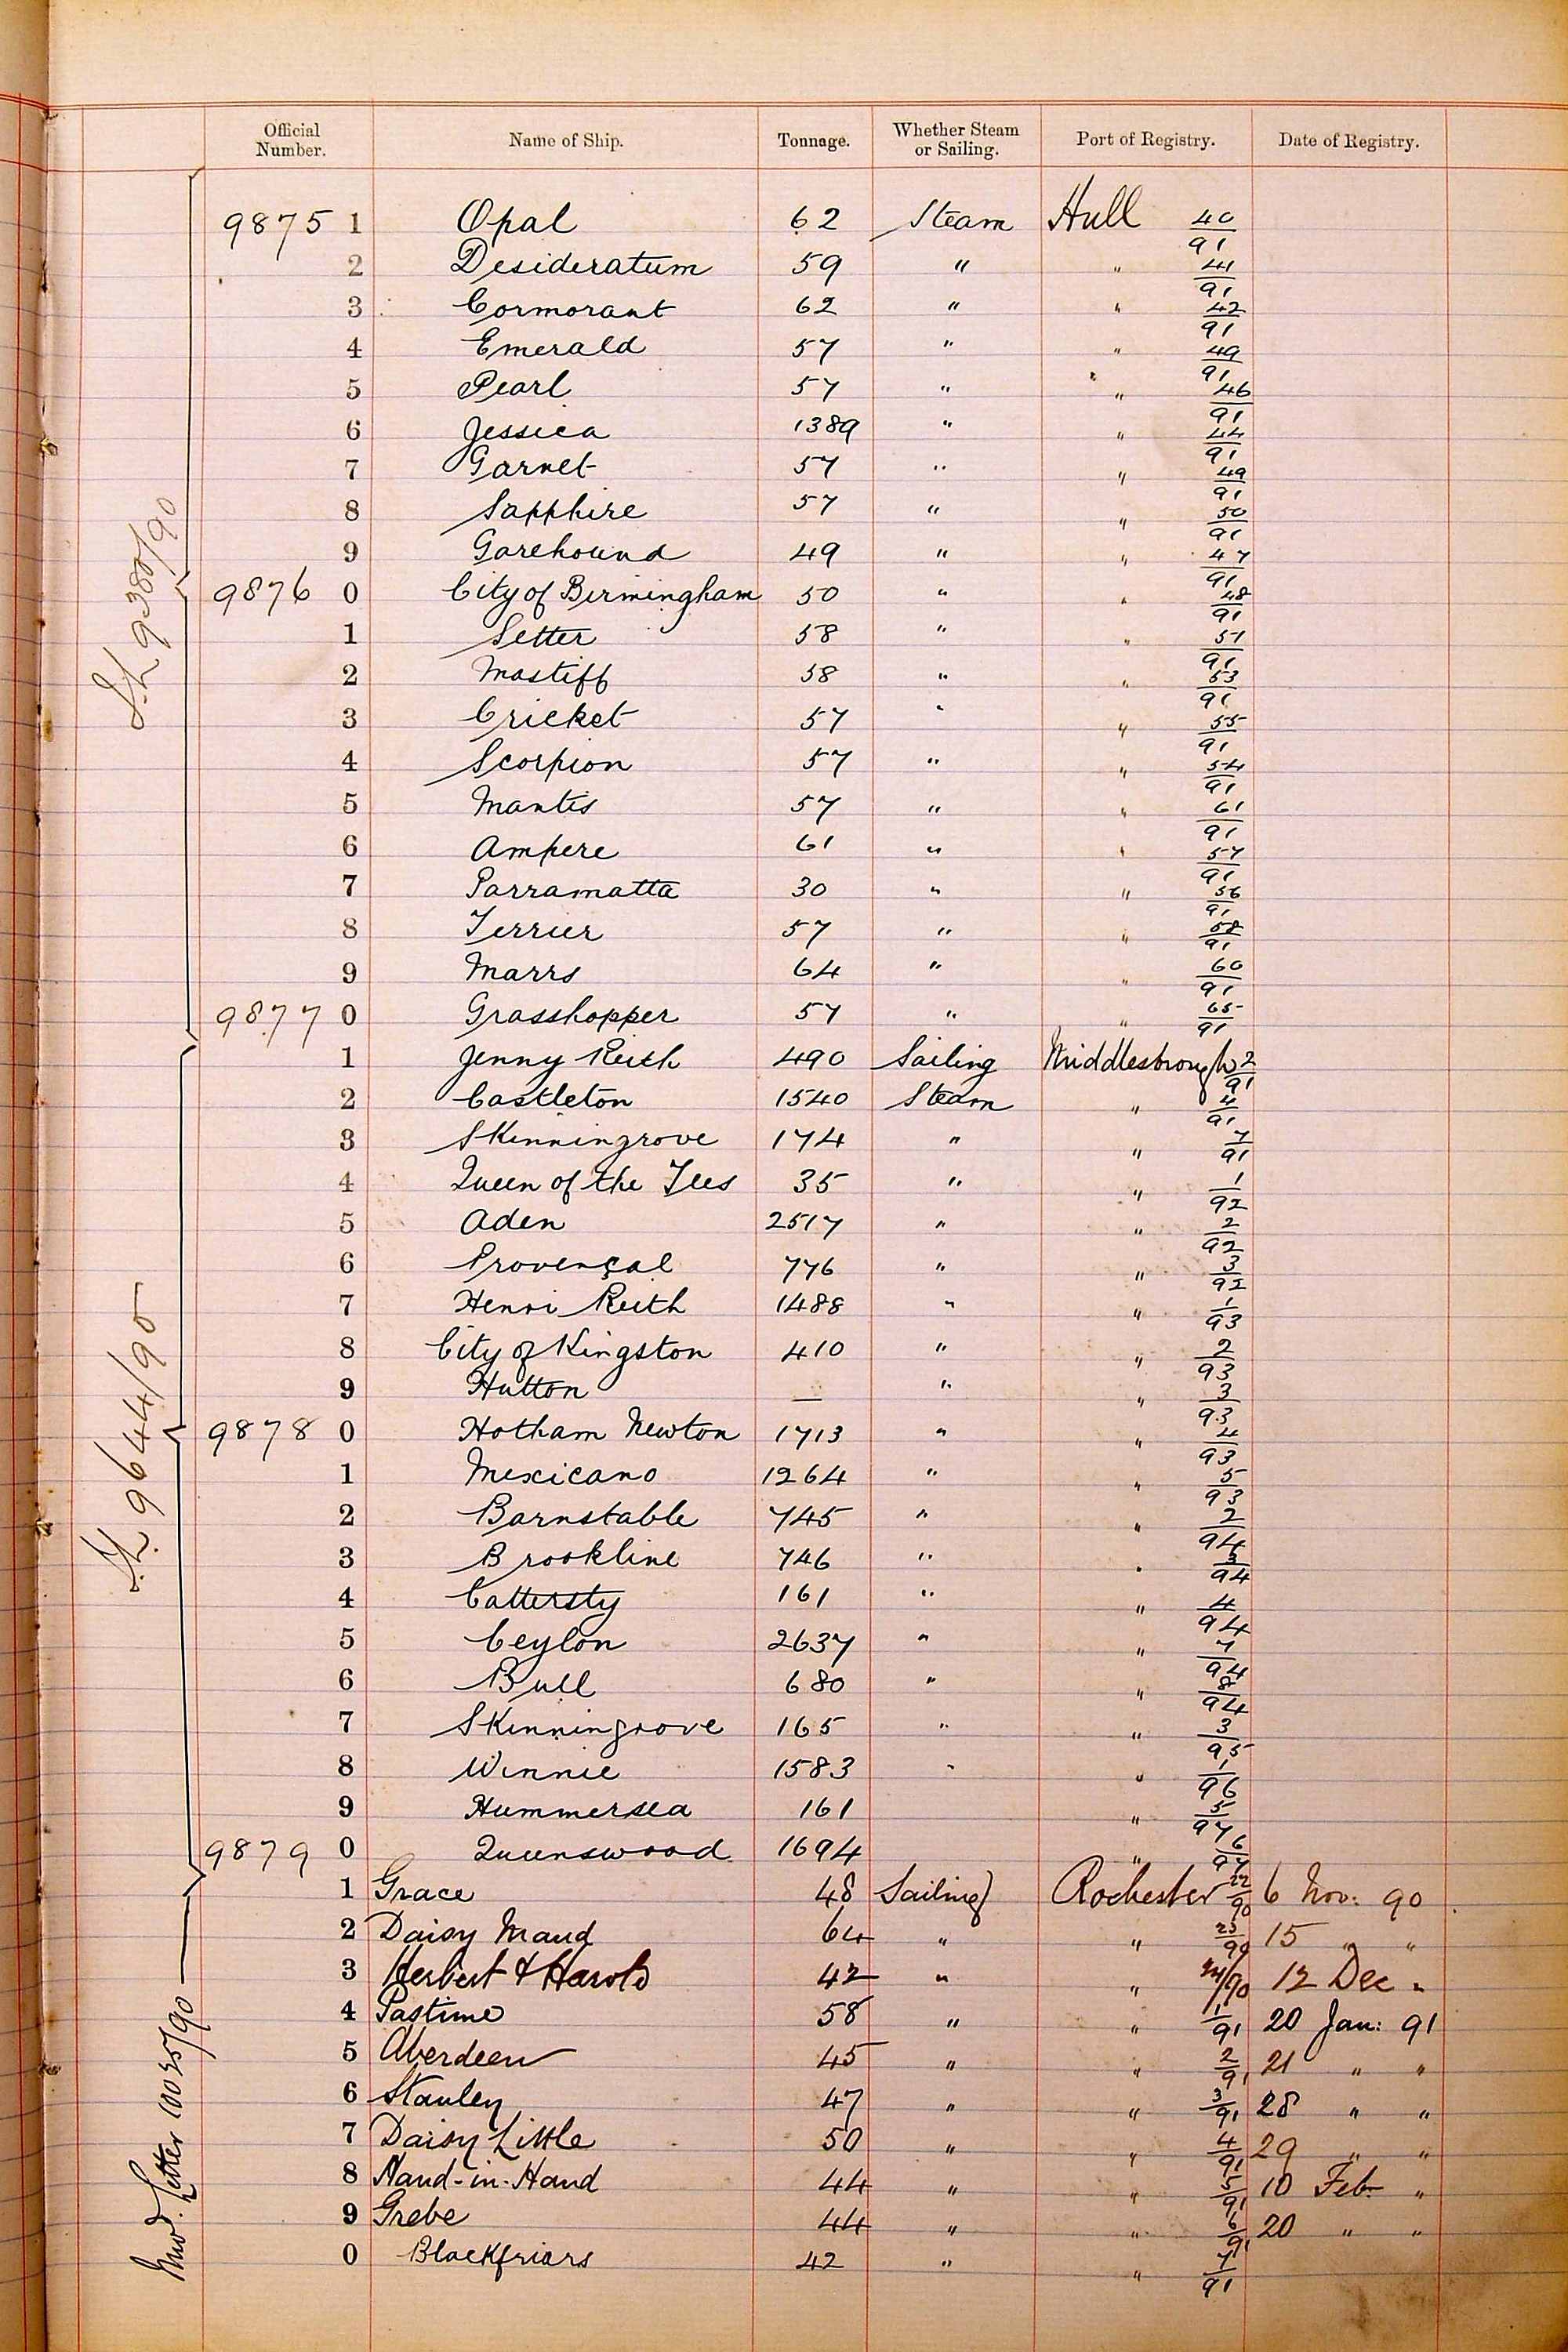 Official Number. Name of Ship. Tonnage. Whether Steam or Sailing. Port of Registry. Date of Registry.
9875 1 Opal 62 Steam Hull 40/91
2 Desideratum 59 " " 41/91
3 Cormorant 62 " " 42/91
4 Emerald 57 " " 49/91
5 Pearl 57 " " 46/91
6 Jessica 1389 " " 44/91
7 Garnet 57 " " 49/91
8 Sapphire 57 " " 50/91
9 Gorehound 49 " " 47/91
9876 0 City of Birmingham 50 " " 48/91
1 Setter 58 " " 51/91
2 Mastiff 58 " " 53/91
3 Cricket 57 " " 55/91
4 Scorpion 57 " " 54/91
5 Mantis 57 " " 61/91
6 Ampere 61 " " 57/91
7 Parramatta 30 " " 56/91
8 Terrier 57 " " 58/91
9 Marrs 64 " " 60/91
9877 0 Grasshopper 57 " " 65/91
S.L 9380/90
1 Jenny Keith 490 Sailing Middlesbrough 2/91
2 Castleton 1540 Steam " 4/91
3 Skinningrove 174 " " 7/91
4 Queen of the Tees 35 " " 1/92
5 Aden 2517 " " 2/92
6 Provençal 776 " " 3/92
7 Henri Reith 1488 " " 1/93
8 City of Kingston 410 " " 2/93
9 Hutton — " " 3/93
9878 0 Hotham Newton 1713 " " 4/93
1 Mexicano 1264 " " 5/93
2 Barnstable 745 " " 2/94
3 Brookline 746 " " 3/94
4 Cattersty 161 " " 4/94
5 Ceylon 2637 " " 7/94
6 Bull 680 " " 8/94
7 Skinningrove 165 " " 3/95
8 Winnie 1583 " " 1/96
9 Hummersea 161 " 5/97
9879 0 Queenswood 1694 " 6/97
S.L. 9644/90
1 Grace 48 Sailing Rochester 22/90 6 Nov: 90
2 Daisy Maud 64 " " 23/90 15 " "
3 Herbert & Harold 42 " " 24/90 12 Dec "
4 Pastime 58 " " 1/91 20 Jan: 91
5 Aberdeen 45 " " 2/91 21 " "
6 Stanley 47 " " 3/91 28 " "
7 Daisy Little 50 " " 4/91 29 " "
8 Hand-in-Hand 44 " " 5/91 10 Feb "
9 Grebe 44 " " 6/91 20 " "
0 Blackfriars 42 " " 7/91
Letter 10035/90